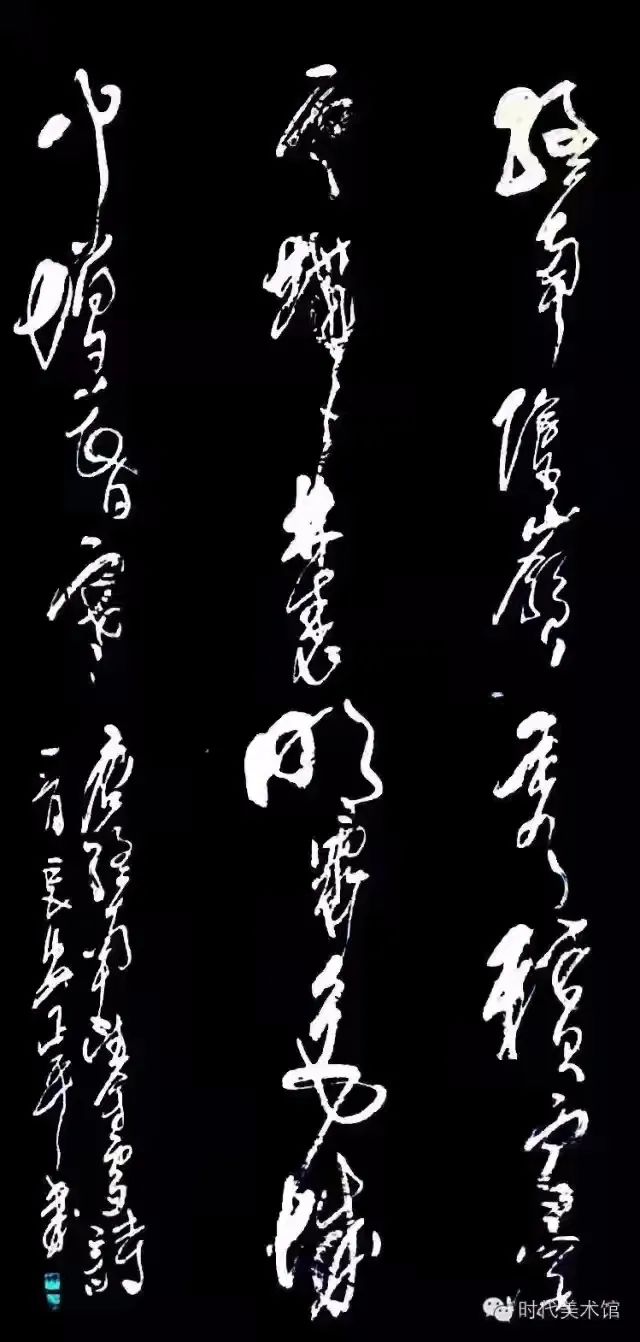 終南陰嶺秀積雪浮
雲端林表明霽色城
中增暮寒
唐終南望餘雪詩
一首長安正平書
时代美术馆